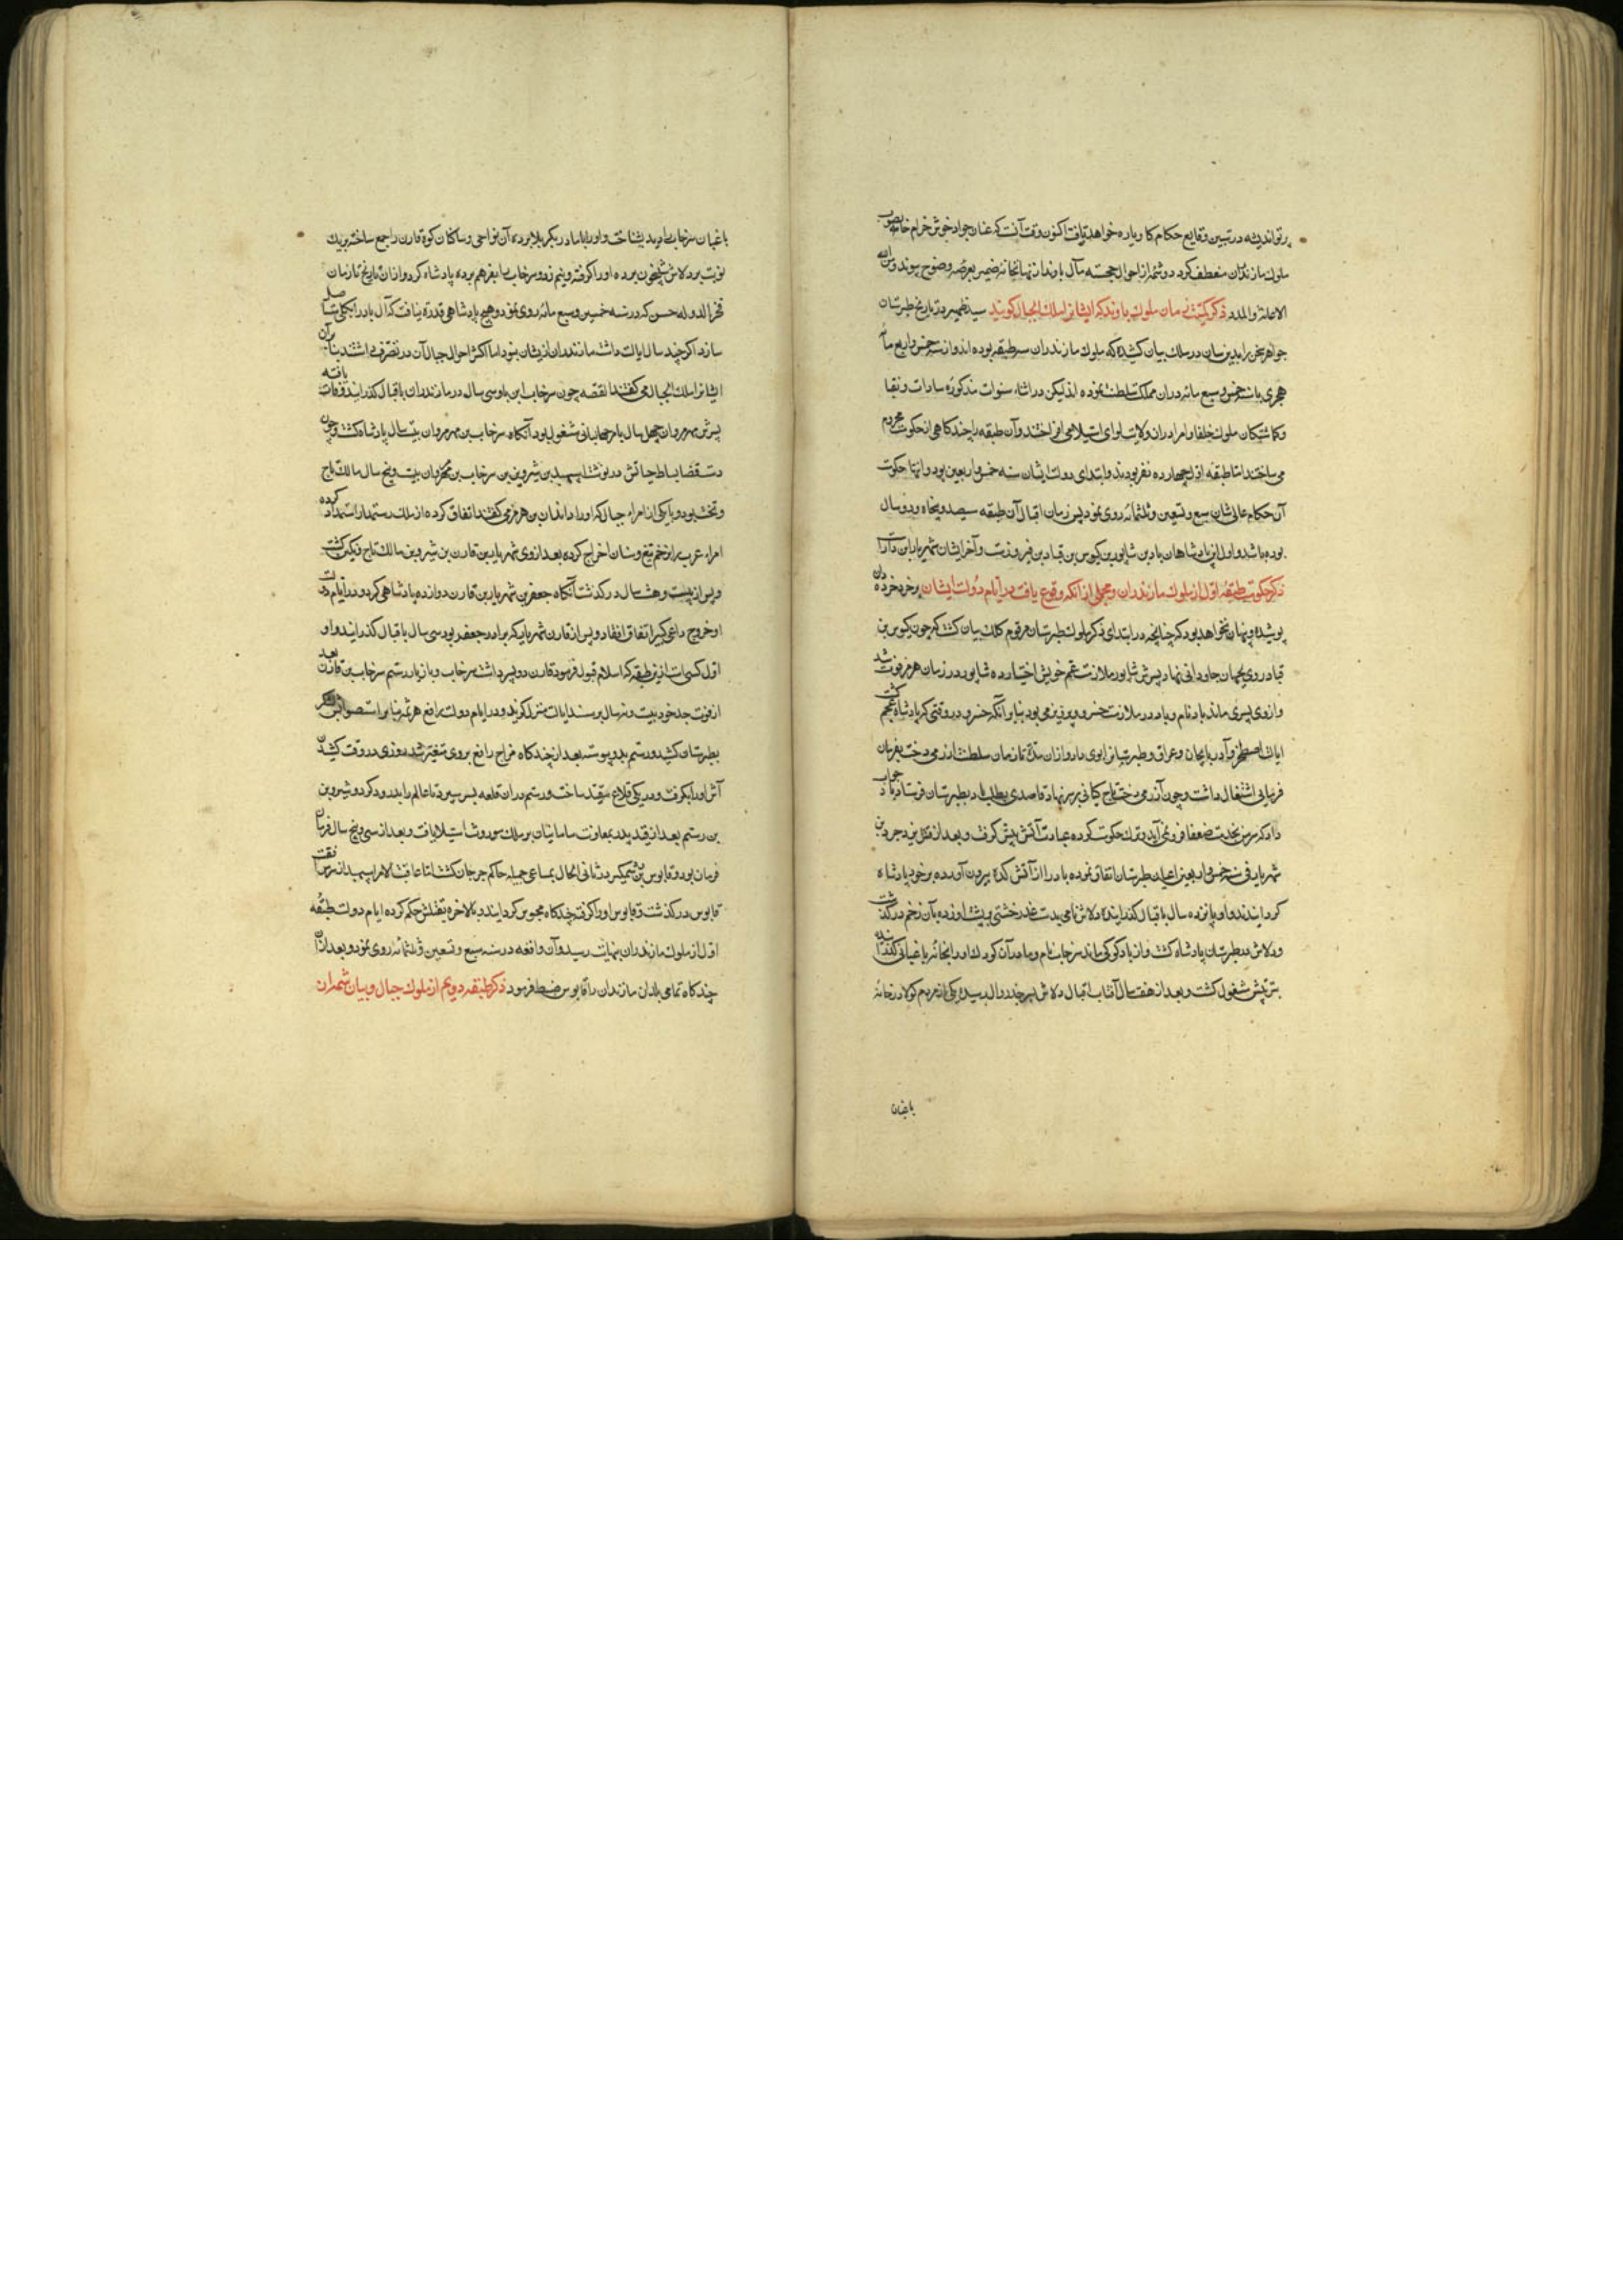 پرتو اندیشه در تبیین وقایع حکام کاوباره خواهد یافت اکنون وقت آنست که عنان جواد خوش خرام خامه بصوب
ملوک مازندران منعطف کردد و شمه از احوال خجسته مآل باوندان از نهانخانه ضمیر بعرصه وضوح پیوندد و من الله
الاعانة والمدد ذکر کیتی‌ستانی ملوک باوند که ایشانرا ملک الجبال کویند سید ظهیر در تاریخ طبرستان
جواهر سخن را بدین سان در سلک بیان کشیده که ملوک مازندران سه طبقه بوده اند و از سنه خمس و اربع مائه
هجری تا سنه خمسین و سبع مائه دران مملکت سلطنت نموده اند لیکن در اثناء سنوات مذکوره سادات و نقبا
و کماشتکان ملوک خلفا و امرا دران ولایت لوای استیلا می افراختند و آن طبقه را چند کاهی از حکومت محروم
می ساختند اما طبقه اول چهارده نفر بودند و ابتدای دولت ایشان سنه خمس و اربعین بود و انتها حکومت
آن حکام عالی شان سبع و تسعین و ثلثمائه روی نمود پس زمان اقبال آن طبقه سیصد و پنجاه و دو سال
بوده باشد و اول این پادشاهان باو بن شاپور بن کیوس بن قباد بن فیروزست و آخر ایشان شهریار ابن دارا
ذکر حکومت طبقه اول از ملوک مازندران و مجملی از آنکه وقوع یافت در ایام دولت ایشان بر خرد خرده دان
پوشیده و پنهان نخواهد بود که چنانچه در ابتدای ذکر ملوک طبرستان مرقوم کلک بیان کشت که چون کیوس بن
قباد روی بجهان جاودانی نهاد پسرش شاپور ملازمت عم خویش اختیار کرده شاپور در زمان هرمز فوت شد
و از وی پسری ماند باو نام و باو در ملازمت خسرو پرویز می بود بنا بر آنکه خسرو در وقتی که پادشاه عجم کشت
ایالت اصطخر و آذربایجان و عراق و طبرستان را بوی داد و از ان مدت تا زمان سلطنت آزرمی دخت بفرمان
فرمایی اشتغال داشت و چون آزرمی دخت تاج کیانی بر سر نهاد قاصدی بطلب باو بطبرستان فرستاد باو جواب
داد که سر من بخدمت ضعفا فرو نمی آید و ترک حکومت کرده عبادت آتش پیش کرفت و بعد از قتل یزدجرد بن
شهریار فی سنه خمس و اربعین اعیان طبرستان اتفاق نموده باو را از آتش کده بیرون آورده بر خود پادشاه
کردانیدند و او پانزده سال باقبال کذرانیده ولاش نامی بدست غدر خشتی بر پشت او زده بآن زخم درکذشت
و ولاش در طبرستان پادشاه کشت و از باو کودکی ماند سرخاب نام و مادر آن کودک او را بخانه باغبانی کذرانیده
بتربیتش مشغول کشت و بعد از هفت سال آفتاب اقبال ولاش بسرحد زوال رسیده یکی از مردم کولا در خانه
باغبان
باغبان سرخاب را بدید بشناخت و او را با مادر بکر بلا برده آن نواحی و ساکنان کوه قارن را جمع ساخته بریک
نوبت بر ولاش شبیخون برده او را کرفته و بنیم زد و سرخاب را بفرهم برده پادشاه کرد و از ان تاریخ تا زمان
فخر الدوله حسن که در سنه خمسین و سبع مائه روی نمود و هیچ پادشاهی قدرت نیافت که آل باو را بکلی مستاصل
سازد اکرچه چند سال ایالت داشت مازندران از یشان نبود اما اکثر احوال جبال آن در تصرف داشتند بنا بر آن
ایشانرا ملک الجبال می کفتند القصه چون سرخاب ابن باو سی سال در مازندران باقبال کذرانید وفات یافته
پسرش مهرمردان چهل سال بامر جهانبانی مشغول بود آنکاه سرخاب بن مهرمردان بیست سال پادشاه کشت و چون
دست قضا بساط حیاتش در نوشت اسپهبد بن شروین بن سرخاب بن مهرمردان بیست و پنج سال مالک تاج
و تخت بود و با یکی از امراء جبال که او را ونداد بن هرمز می کفتند اتفاق کرده از ملک رستمدار استمداد کرده
امراء عرب را بزخم تیغ و سنان اخراج کرده بعد از وی شهریار بن قارن بن شروین مالک تاج و نکین کشت
و پس از بیست و هشت سال درکذشت آنکاه جعفر بن شهریار بن قارن دوازده پادشاهی کرد و در ایام دولت
او خروج داعی کبیر اتفاق افتاد و پس از قارن شهریار که برادر جعفر بود سی سال باقبال کذرانید و او
اول کسی است از این طبقه که اسلام قبول فرمود قارن دو پسر داشت سرخاب و مازیار رستم سرخاب بن قارن بعد
از فوت جد خود بیست و نه سال بر مسند ایالت منزل کزید و در ایام دولت رافع هرثمه بنا بر استصواب لشکر
بطبرستان کشید و رستم بدو پیوست بعد از چند کاه مزاج رافع بر وی متغیر شد روزی در وقت کشیدن
آش او را بکرفت و در یکی قلاع مقید ساخت و رستم دران قلعه بسر می‌برد تا عالم را بدرود کرد و شروین
بن رستم بعد از قید پدر بمعاونت سامانیان بر ملک موروث استیلا یافت و بعد از سی و پنج سال فرمان
فرمان بود و قابوس بن وشمکیر در ثانی الحال بمساعی جمیله حاکم جرجان کشت اما عاقبت الامر اسپهبد از سر موافقت
قابوس درکذشت و قابوس او را کرفته چند کاه محبوس کردانید و بالاخره بقتلش حکم کرده ایام دولت طبقه
اول از ملوک مازندران بنهایت رسید و آن واقعه در سنه سبع و تسعین و ثلثمائه روی نمود و بعد از آن
چند کاه تمامی بلدان مازندان را قابوس ضبط فرمود ذکر طبقه دویم از ملوک جبال و بیان شمه از ان